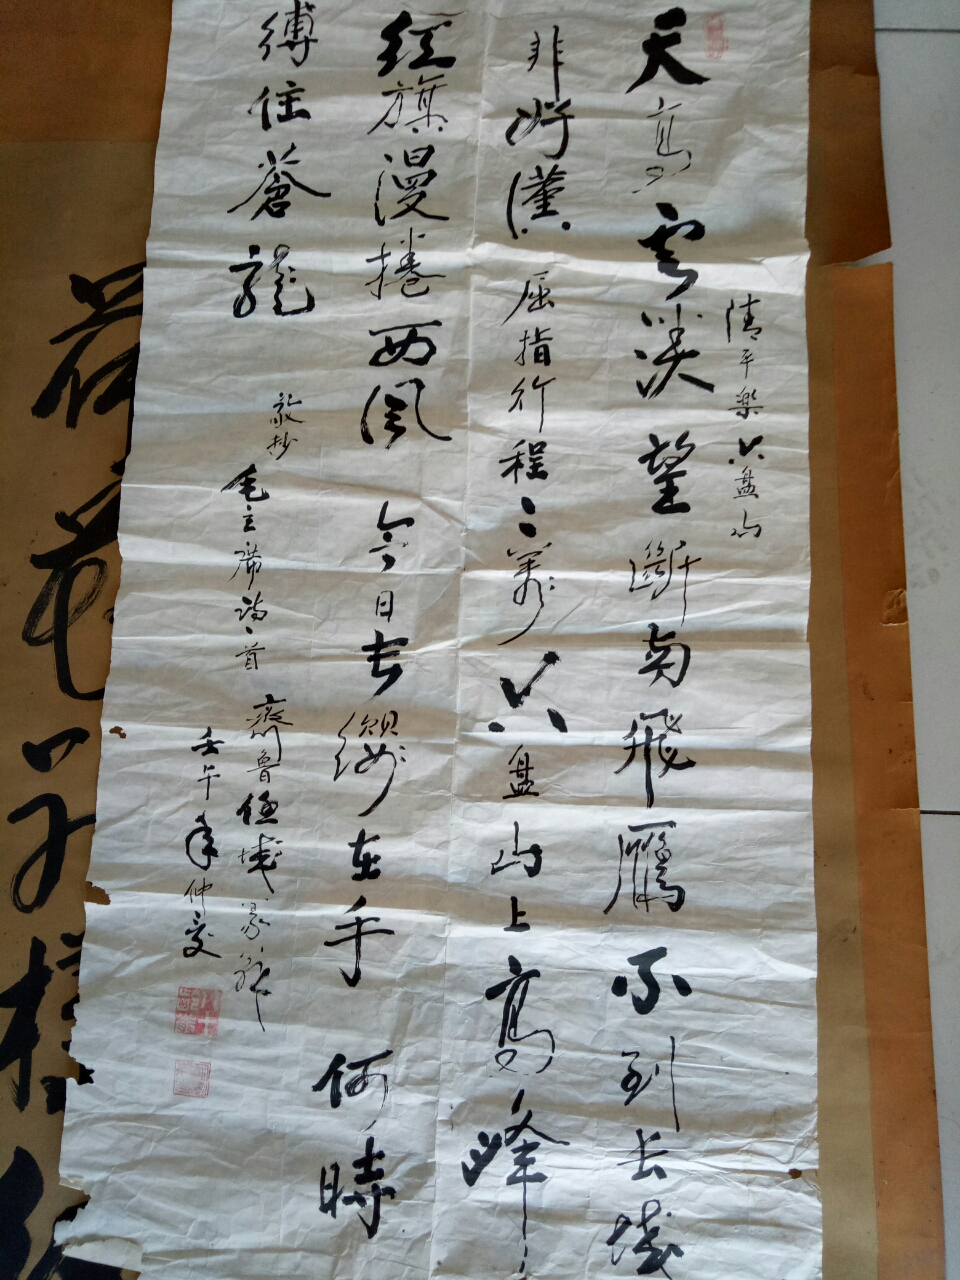 清平樂六盤山
天高雲淡望斷南飛雁不到長城
非好漢屈指行程二萬六盤山上高峰
紅旗漫捲西風今日長纓在手何時
縛住蒼龍
敬抄
毛主席詩一首
齊魯任城
壬午年仲夏